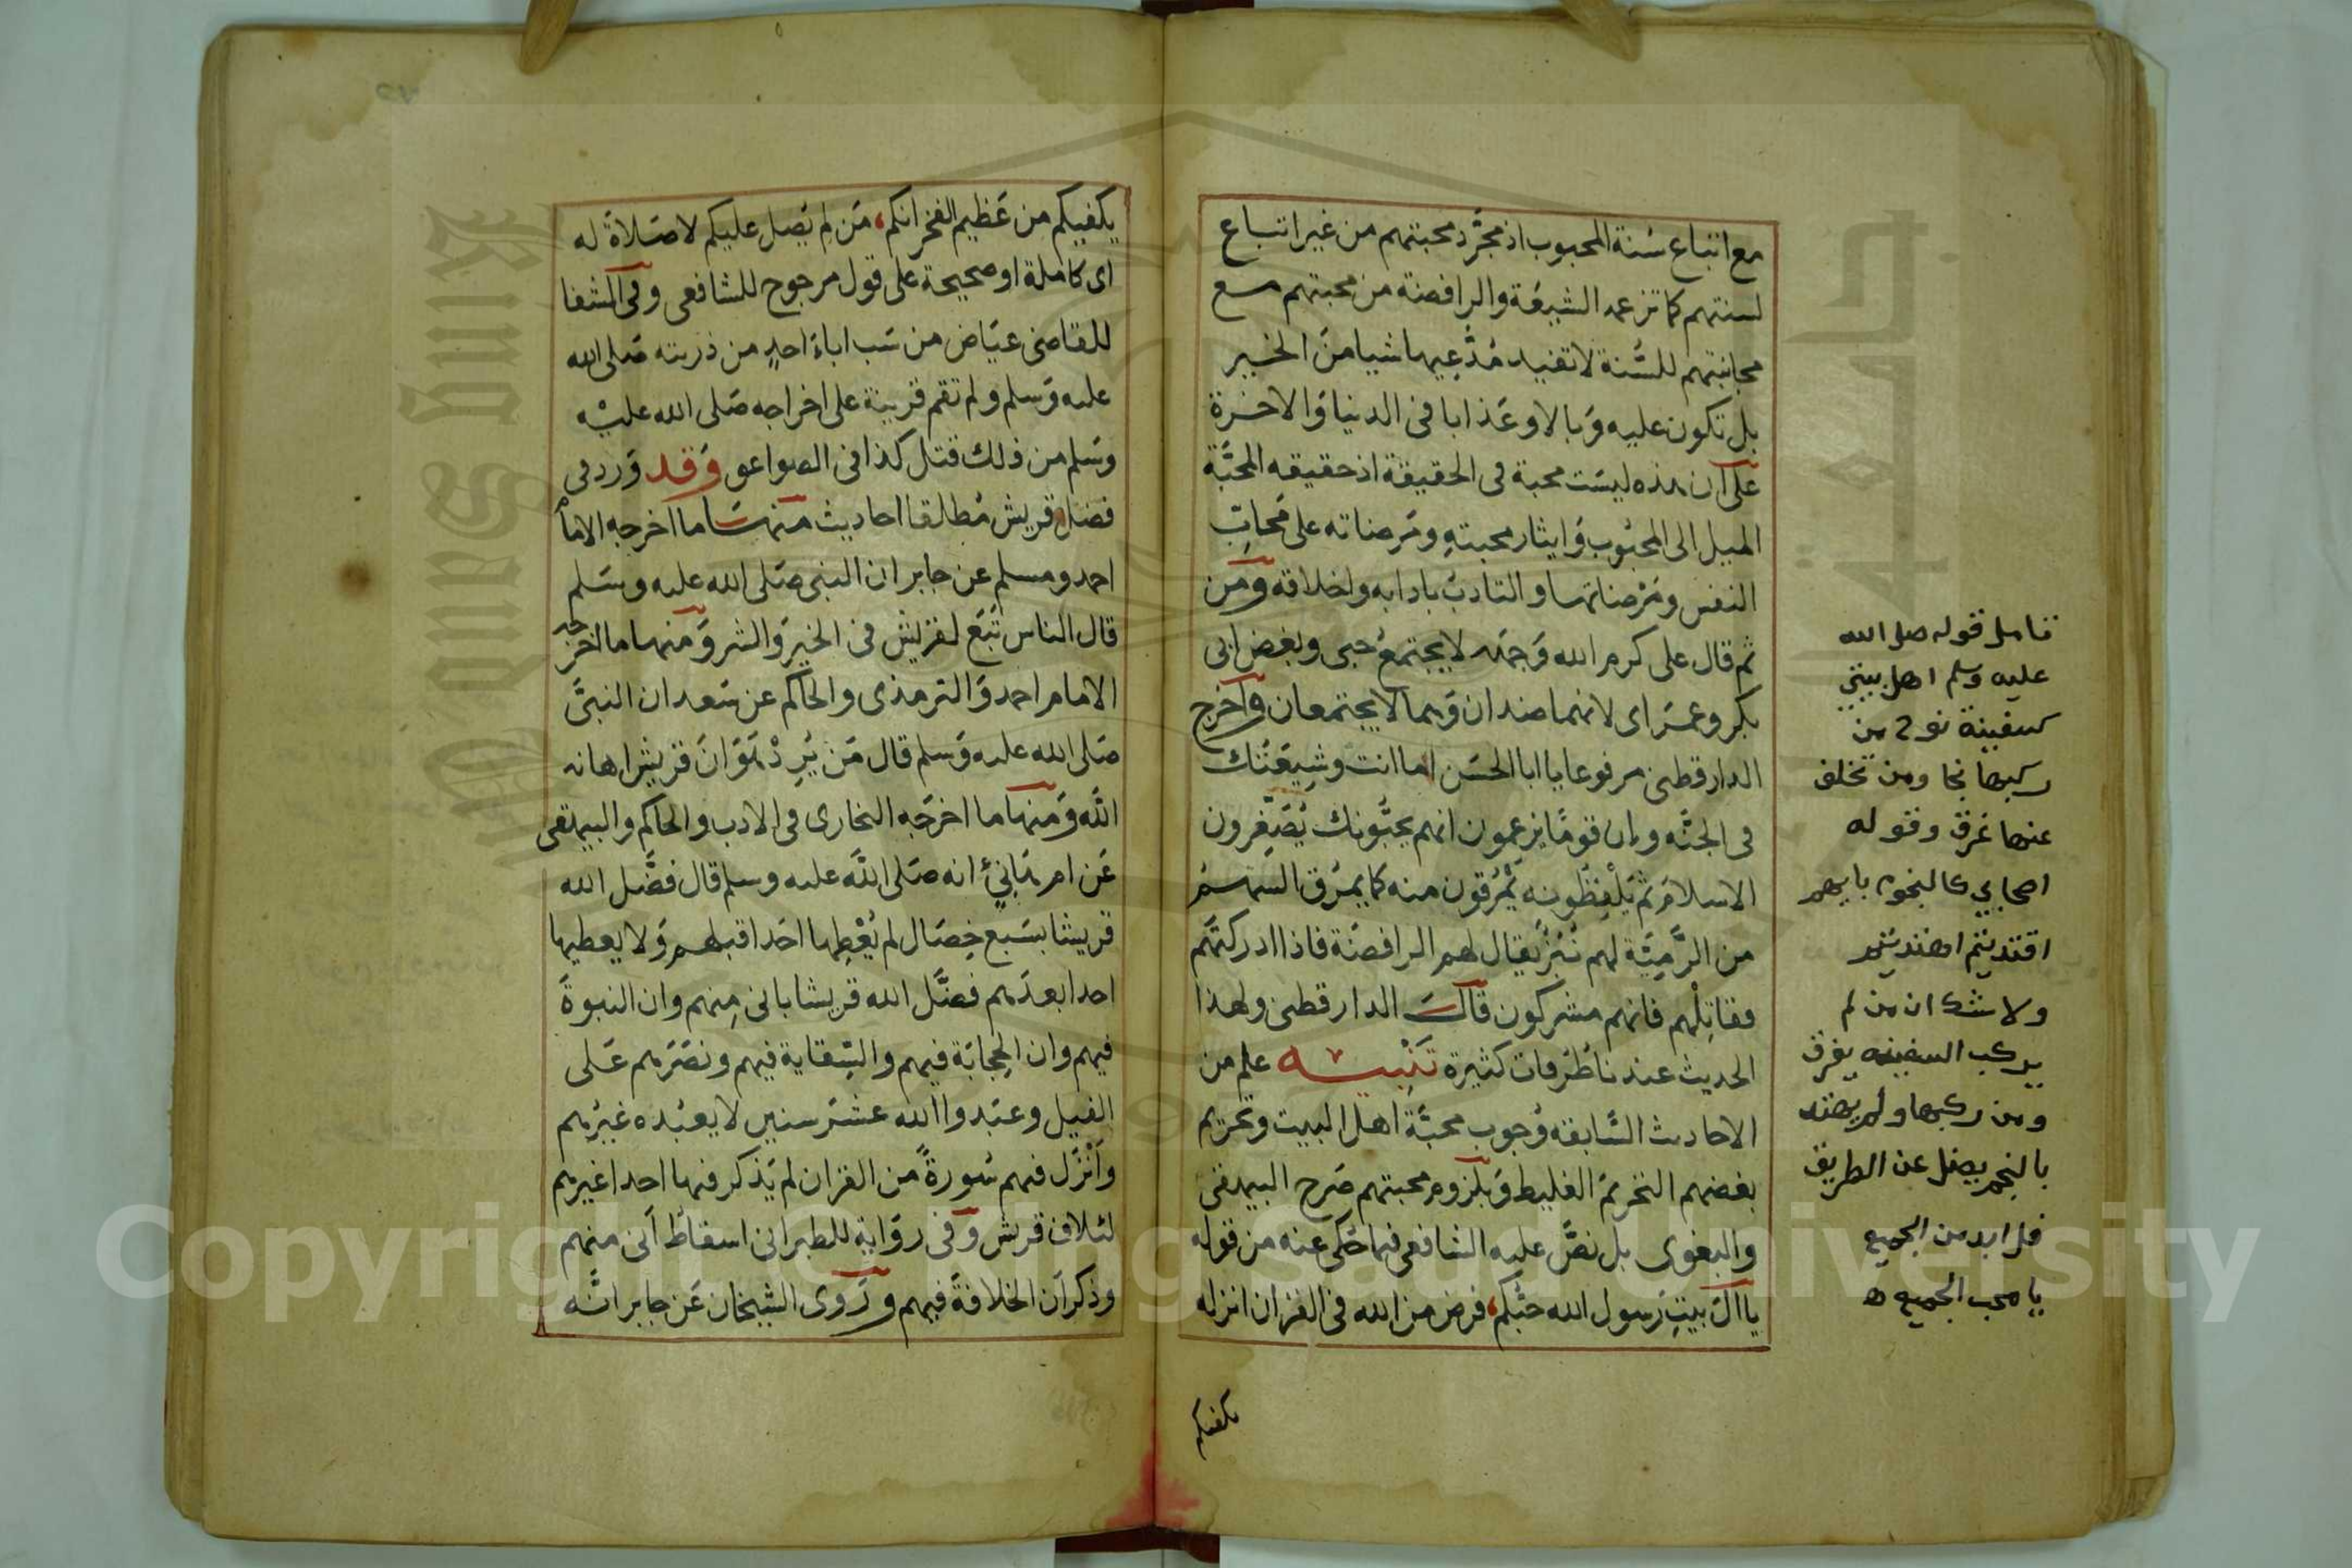 مع اتباع سُنة المحبوب اذ مجرَّد محبتهم من غير اتباع
لسنتهم كما تزعمه الشيعَة والرافضة من محبتهم مع
مجانبتهم للسُّنة لا تفيد مُدَّعِيها شيا منَ الخير
بل تكون عليه وَبالا وعَذابا فى الدنيا وَالاخرة
على ان هذه ليسَت محبة فى الحقيقة اذ حقيقه المحبَّة
الميل الى المحبُوب وَايثار محبتهِ ومَرضاته على مَحابِّ
النفس ومَرْضاتها والتادبُ بادابه واخلاقه ومَن
ثم قال على كرم الله وَجهَه لا يجتمعُ حبى وبغض ابى
بكر وعمَر اى لانهما ضدان وَهما لا يجتمعان واخرج
الدارقطنى مرفوعا يا ابا الحسَن اما انت وشِيعَتُك
فى الجنَّه وان قومًا يزعمون انهم يحبُّونك يُصَغِّرون
الاسلامَ ثم يَلْفِظُونه يَمْرُقون منه كما يمرُق السَهمُ
من الرَّمِيَّة لهم نُبْزٌ يقال لهم الرافضَة فاذا ادركتَهم
فقاتِلْهم فانهم مشركون قال الدارقطنى ولهذا
الحديث عندنا طُرُقات كثيرة تَنْبِيه علم من
الاحاديث السَّابقه وُجوب محبَّة اهل البيت وتحريم
بغضهم التحريمَ الغليظ وَبلزوم محبتهم صَرح البيهقى
والبغوى بل نصَّ عليه الشافعى فيما حُكى عنه من قوله
يا الَ بيتِ رَسول الله حبُّكم، فرض من الله فى القران انزله
يكفيكم
تامل قوله صلى الله
عليه وسلم اهل بيتي
كسفينة نوح من
ركبها نجا ومن تخلف
عنها غرق وقوله
اصحابي كالنجوم بايهم
اقتديتم اهتديتم
ولا شك ان من لم
يركب السفينه يغرق
ومن ركبها ولم يهتد
بالنجم يضل عن الطريق
فلا بد من الجميع
يا محب الجميع ه
يكفيكم من عَظيم الفخر انكم، مَن لم يُصل عليكم لا صَلاةَ له
اى كاملة او صحيحة على قول مرجوح للشافعى وفى الشفا
للقاضى عيَاض من سَب اباءَ احدٍ من ذريته صَلى الله
عليه وَسلم ولم تقم قرينة على اخراجه صَلى الله عليْه
وسَلم من ذلك قتل كذا فى الصواعق وَقد وَرد فى
فضل قريش مُطلقا احاديث منها ما اخرجه الامامُ
احمد ومسلم عن جابر ان النبى صَلى الله عليه وسَلم
قال الناس تَبَع لقريش فى الخيرِ وَالشر وَمنها ما اخرجَه
الامام احمد وَالترمذى والحاكم عن سَعد ان النبىَّ
صَلى الله عليه وَسلم قال مَن يُرِدْ هَوَانَ قريش اهانه
اللَّه وَمنها ما اخرَجه البخارى فى الادب والحاكم والبيهقى
عَن ام هَانِئ انه صَلى اللَّه عليه وسلم قال فضَّل الله
قريشا بسَبع خِصَال لم يُعْطِها احَدا قبلهم وَلا يعطيها
احدا بعدَهم فضَّل الله قريشا بانى مِنهم وان النبوةَ
فيهم وان الحِجابَة فيهم والسِّقاية فيهم ونصَرَهم عَلى
الفيل وعبَدوا الله عشرَ سنين لا يعبُده غيرُهم
وَاَنْزَل فيهم سُورةً من القران لم يَذكر فيها احدا غيرهم
لئلاف قريش وَفى روَاية للطبرانى اسقاط اَنى منهم
وذكر اَن الخلافةَ فيهم ورَوى الشيخان عَن جابر انَّه